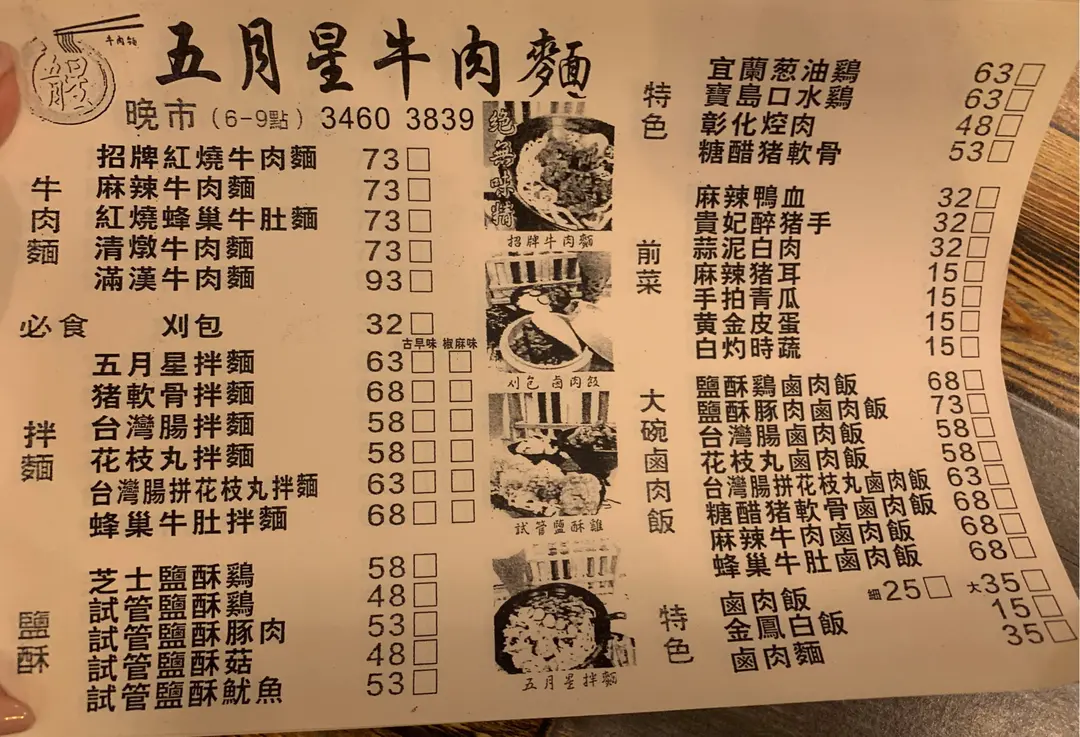 牛肉麵
五月星牛肉麵
晚市（6-9點）3460 3839
牛肉麵
招牌紅燒牛肉麵 73□
麻辣牛肉麵 73□
紅燒蜂巢牛肚麵 73□
清燉牛肉麵 73□
滿漢牛肉麵 93□
必食 刈包 32□
古早味 椒麻味
拌麵
五月星拌麵 63□ □
猪軟骨拌麵 68□ □
台灣腸拌麵 58□ □
花枝丸拌麵 58□ □
台灣腸拼花枝丸拌麵 63□ □
蜂巢牛肚拌麵 68□ □
鹽酥
芝士鹽酥鷄 58□
試管鹽酥鷄 48□
試管鹽酥豚肉 53□
試管鹽酥菇 48□
試管鹽酥魷魚 53□
絕無味精
招牌牛肉麵
刈包 鹵肉飯
試管鹽酥雞
五月星拌麵
特色
宜蘭葱油鷄 63□
寶島口水鷄 63□
彰化焢肉 48□
糖醋猪軟骨 53□
前菜
麻辣鴨血 32□
貴妃醉猪手 32□
蒜泥白肉 32□
麻辣猪耳 15□
手拍青瓜 15□
黄金皮蛋 15□
白灼時蔬 15□
大碗鹵肉飯
鹽酥鷄鹵肉飯 68□
鹽酥豚肉鹵肉飯 73□
台灣腸鹵肉飯 58□
花枝丸鹵肉飯 58□
台灣腸拼花枝丸鹵肉飯 63□
糖醋猪軟骨鹵肉飯 68□
麻辣牛肉鹵肉飯 68□
蜂巢牛肚鹵肉飯 68□
特色
鹵肉飯 細25□ 大35□
金鳳白飯 15□
鹵肉麵 35□